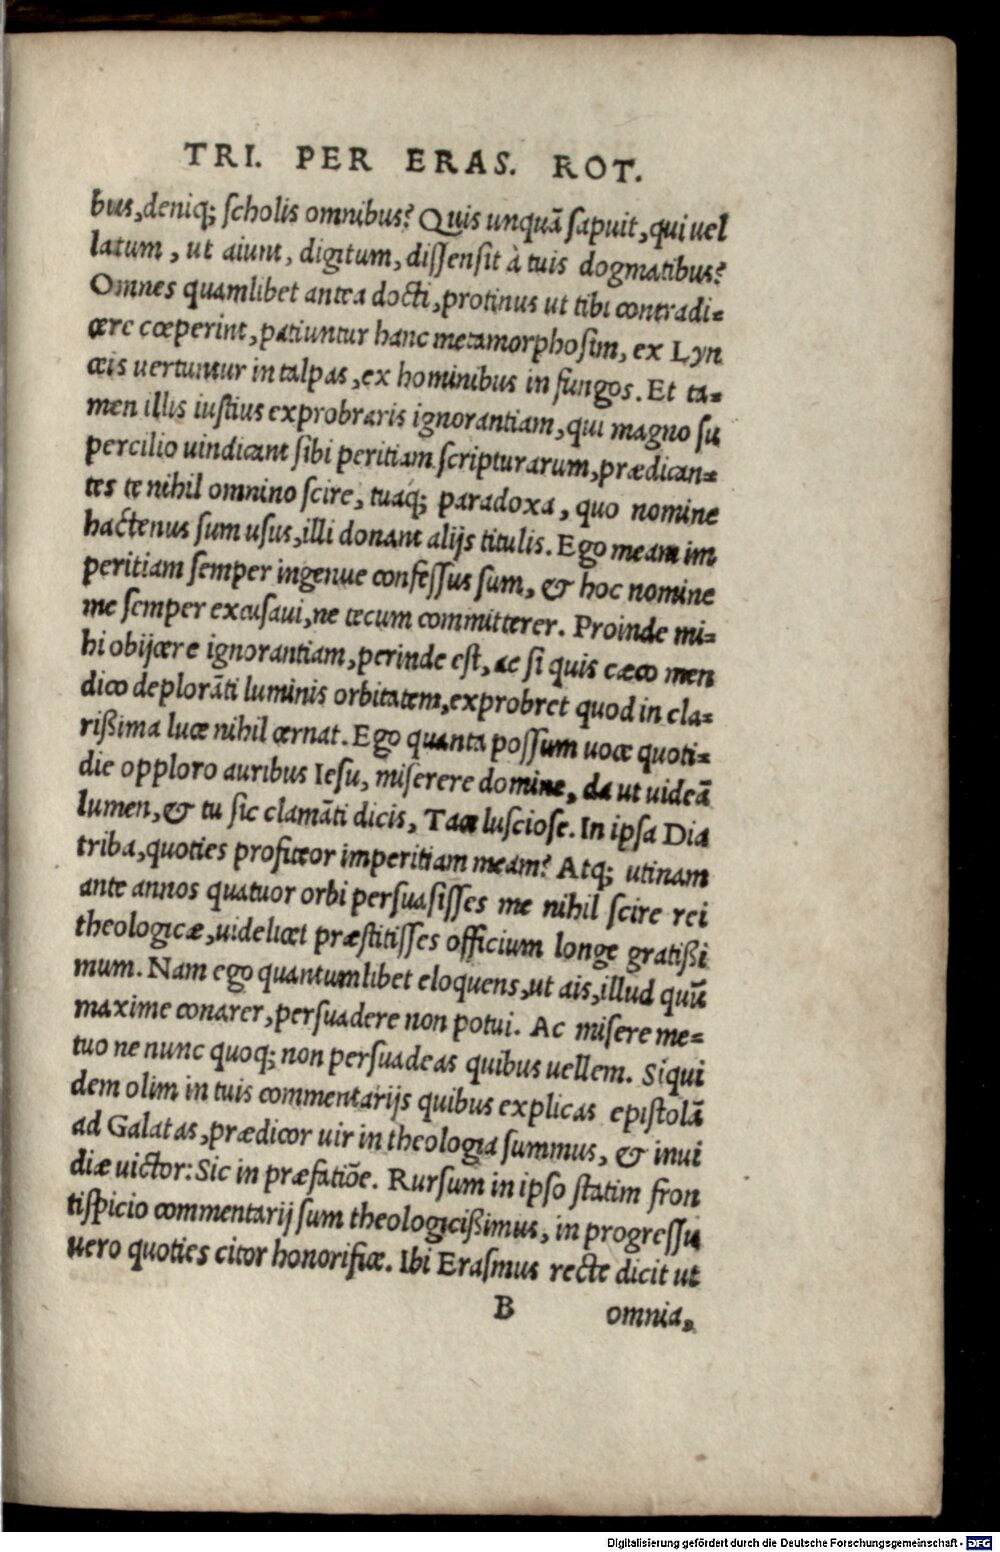 TRI. PER ERAS. ROT.
bus, deniq; scholis omnibus? Quis unquā sapuit, qui uel
latum, ut aiunt, digitum, dissensit à tuis dogmatibus?
Omnes quamlibet antea docti, protinus ut tibi contradi=
cere cœperint, patiuntur hanc metamorphosim, ex Lyn
ceis uertuntur in talpas, ex hominibus in fungos. Et ta=
men illis iustius exprobraris ignorantiam, qui magno su
percilio uindicant sibi peritiam scripturarum, prædican=
tes te nihil omnino scire, tuaq; paradoxa, quo nomine
hactenus sum usus, illi donant alijs titulis. Ego meam im
peritiam semper ingenue confessus sum, & hoc nomine
me semper excusaui, ne tecum committerer. Proinde mi=
hi obijcere ignorantiam, perinde est, ac si quis cæco men
dico deplorāti luminis orbitatem, exprobret quod in cla=
rißima luce nihil cernat. Ego quanta possum uoce quoti=
die opploro auribus Iesu, miserere domine, da ut uideā
lumen, & tu sic clamāti dicis, Tace lusciose. In ipsa Dia
triba, quoties profiteor imperitiam meam? Atq; utinam
ante annos quatuor orbi persuasisses me nihil scire rei
theologicæ, uidelicet præstitisses officium longe gratißi
mum. Nam ego quantumlibet eloquens, ut ais, illud quū
maxime conarer, persuadere non potui. Ac misere me=
tuo ne nunc quoq; non persuadeas quibus uellem. Siqui
dem olim in tuis commentarijs quibus explicas epistolā
ad Galatas, prædicor uir in theologia summus, & inui
diæ uictor: Sic in præfatiōe. Rursum in ipso statim fron
tispicio commentarij sum theologicißimus, in progressu
uero quoties citor honorifice. Ibi Erasmus recte dicit ut
B omnia,
Digitalisierung gefördert durch die Deutsche Forschungsgemeinschaft - DFG